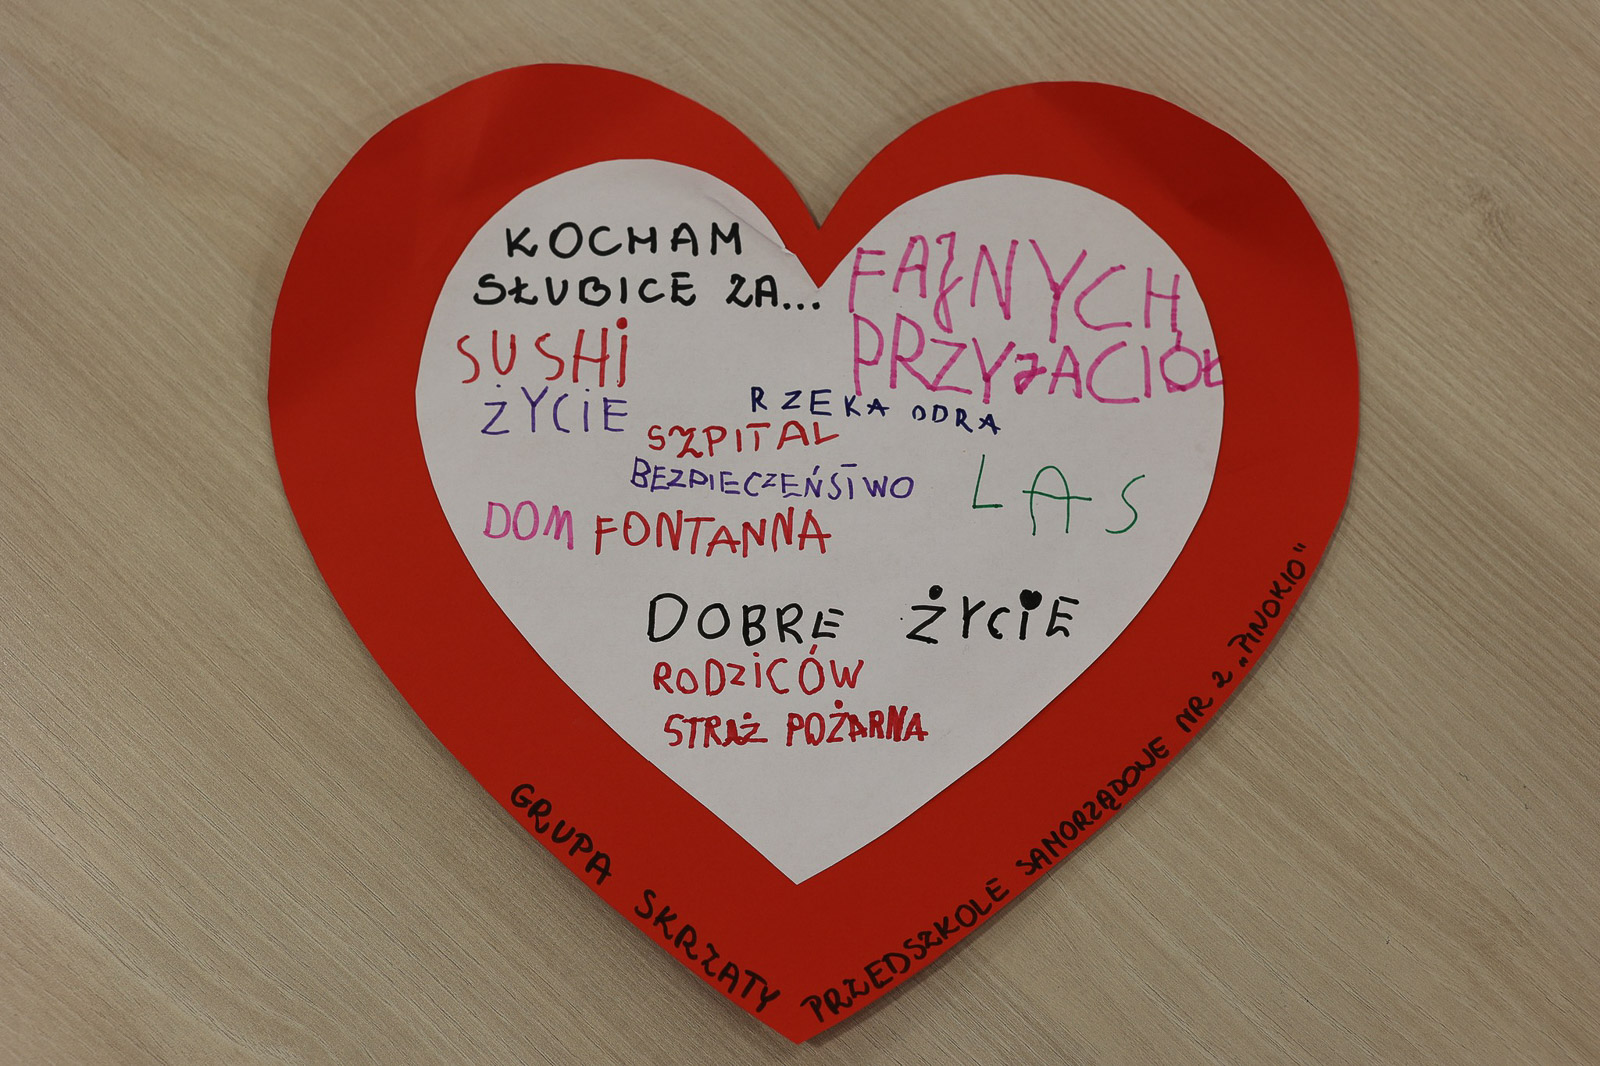 KOCHAM
SŁUBICE ZA...
FAJNYCH
PRZYJACIÓŁ
SUSHi
ŻYCiE
RZEKA ODRA
SZPITAL
BEZPIECZEŃSTWO
LAS
DOM FONTANNA
DOBRE ŻYCiE
RODZiCÓW
STRAŻ POŻARNA
GRUPA SKRZATY
PRZEDSZKOLE SAMORZĄDOWE NR 2 „PINOKIO"